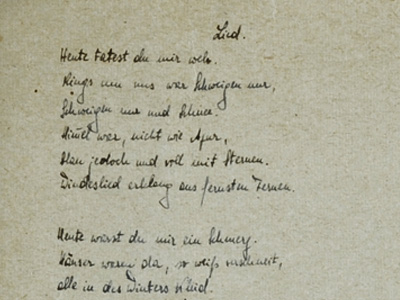 Lied.
Heute tatest du mir weh.
Rings um uns war Schweigen nur,
Schweigen nur und Schnee.
Himmel war, nicht wie Azur,
blau jedoch und voll mit Sternen.
Windeslied erklang aus fernsten Fernen.
Heute warst du mir ein Schmerz.
Häuser waren da, so weiß verschneit,
alle in des Winters Kleid.